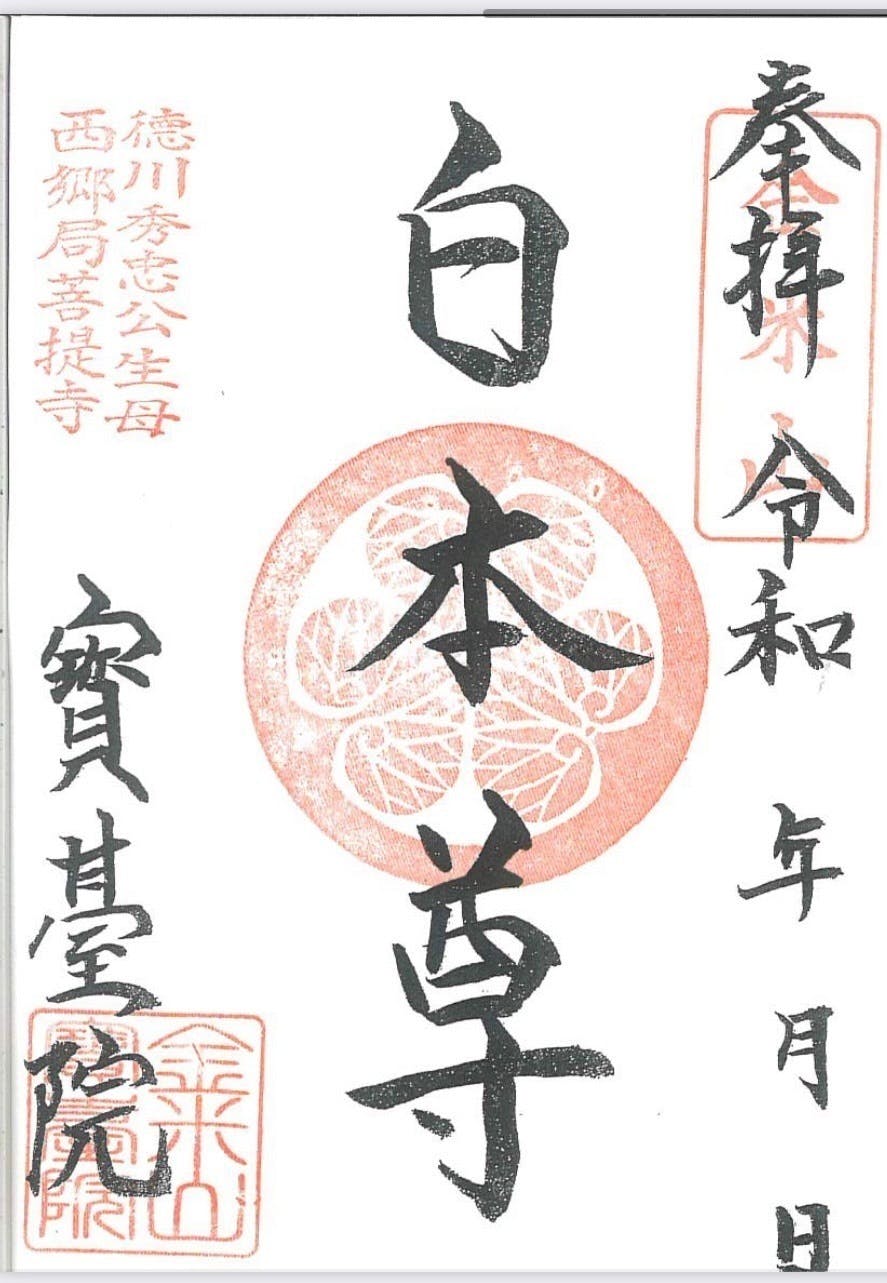 奉拝 令和 年 月 日
金米山
白本尊
徳川秀忠公生母
西郷局菩提寺
寶臺院
金米山
寶臺院